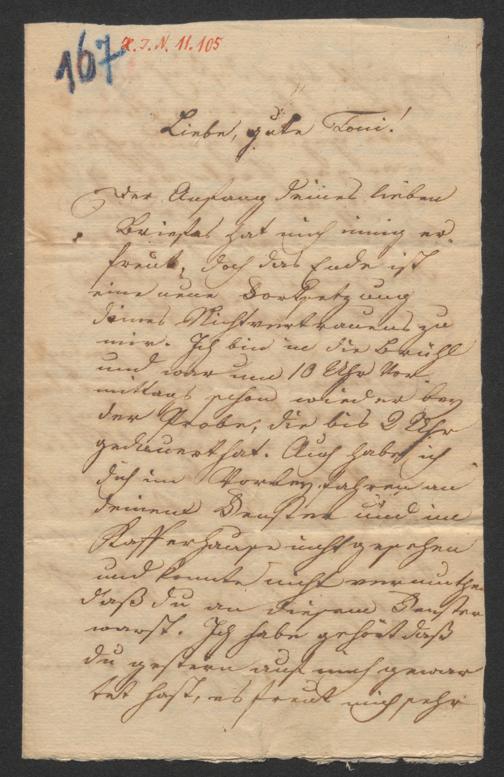 167
H. I. N. 11.105
Liebe, gute Toni!
Der Anfang deines lieben
Briefes hat mich innig er-
freut, doch das Ende ist
eine neue Fortsetzung
deines Nichtvertrauens zu
mir. Ich bin in die Brühl
und war um 10 Uhr Vor-
mittags schon wieder bey
der Probe, die bis 2 Uhr
gedauert hat. Auch habe ich
dich im Vorbeyfahren an
deinem Fenster und im
Kaffeehause nicht gesehen
und konnte nicht vermuthen
daß du an diesem Fenster
warst. Ich habe gehört daß
du gestern auf mich gewar-
tet hast, es freut mich sehr